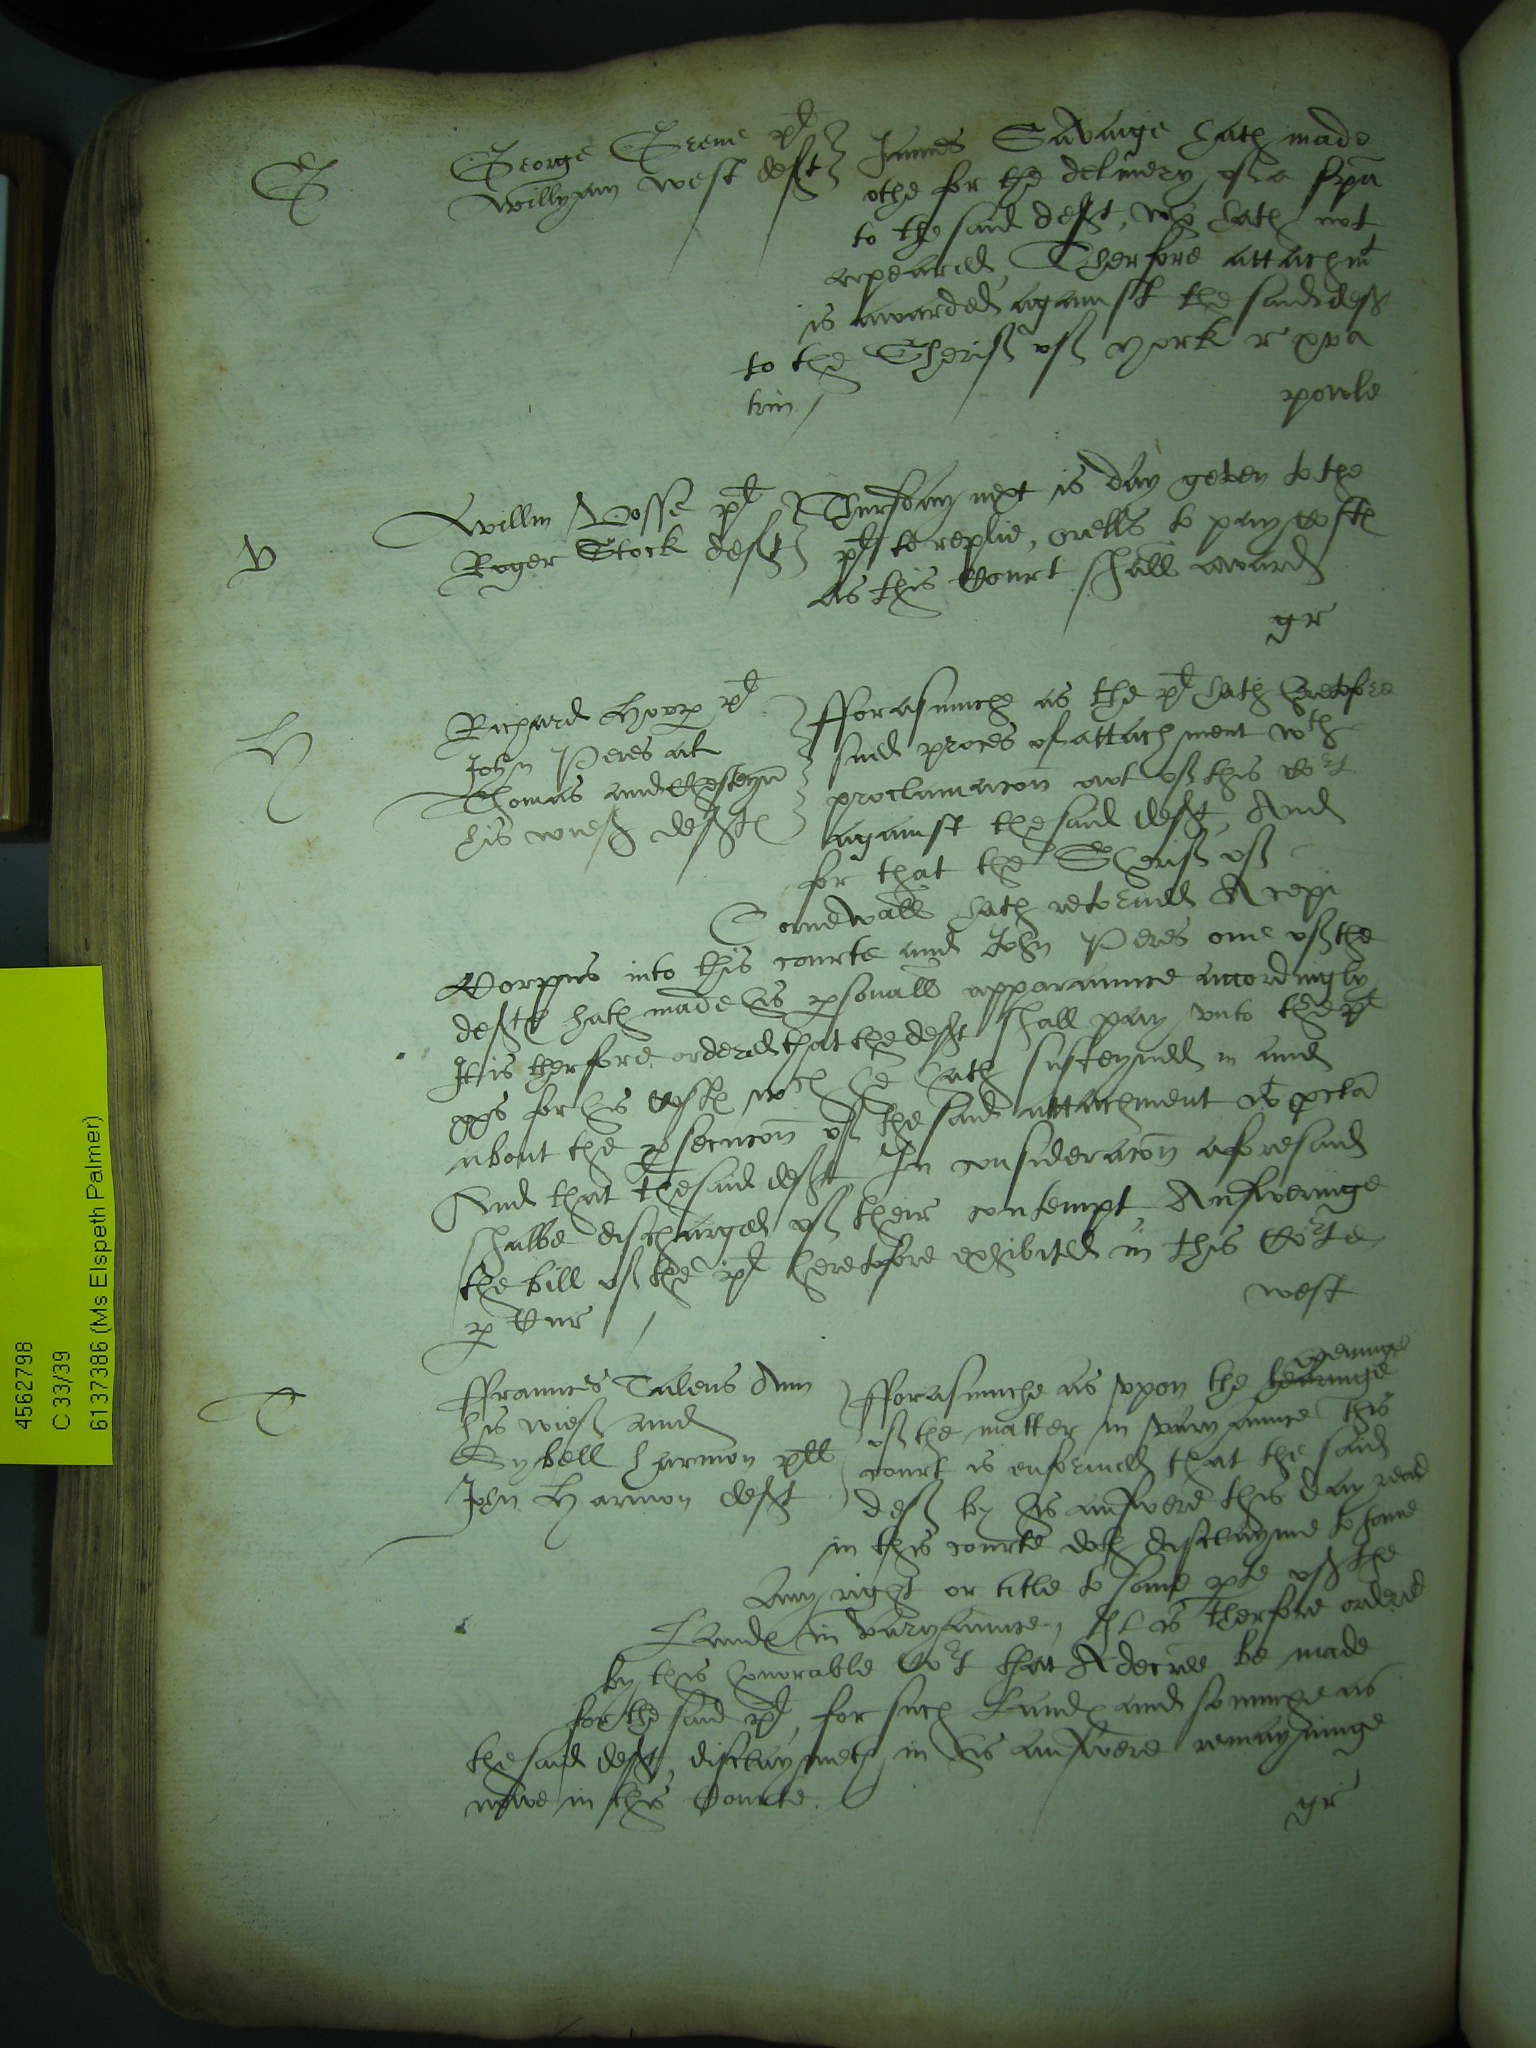 G
George Grene plt
Willyam West deft
James Savaige hath made
othe for the deliuery of a spa
to the said deft, who hath not
apeared Therfore attachmt
is awarded against the said deft
to the Sherif of york r
trin
powle
V
Willm Vosse plt
Roger Stock deft
Thursday next is day geven to the
plt to replie, orells to pay costs
as this Court shall award
gr
H
Richard plt
John Peres als
Thomas and
his wief defts
fforasmuche as the plt hath heretofore
sued proces of attachment wth
proclamacon out of this cort
against the said deft, And
for that the Sherif of
Cornewall hath retorned A cepi
Corpus into this courte and John Peres one of the
defts hath made his personall apparaunce accordingly
It is therfore ordered that the deft shall pay unto the plt
for his costs wch he hath susteyned in and
about the prosecucon of the said attachment
And that the said deft In consideracon aforesaid
shalbe discharged of their contempt Answeringe
the bill of the plt heretofore exhibited in this Corte
per Cur
west
T
ffraunces Talens Ann
his wief and
Sybell harmon plts
John Harmon deft
openinge
fforasmuche as upon the hearinge
of the matter in varyaunce This
court is enformed that the said
deft by his answere this day
in this courte doth disclayme to have
any right or title to some pte of the
Lands in varyaunce, It is Therfore ordered
by this honorable Cort that A decree be made
for the said plt, for such Lands and so muche as
the said deft, disclaymeth in his answere remayninge
nowe in this Courte.
gr
4562798
C 33/39
6137386 (Ms Elspeth Palmer)